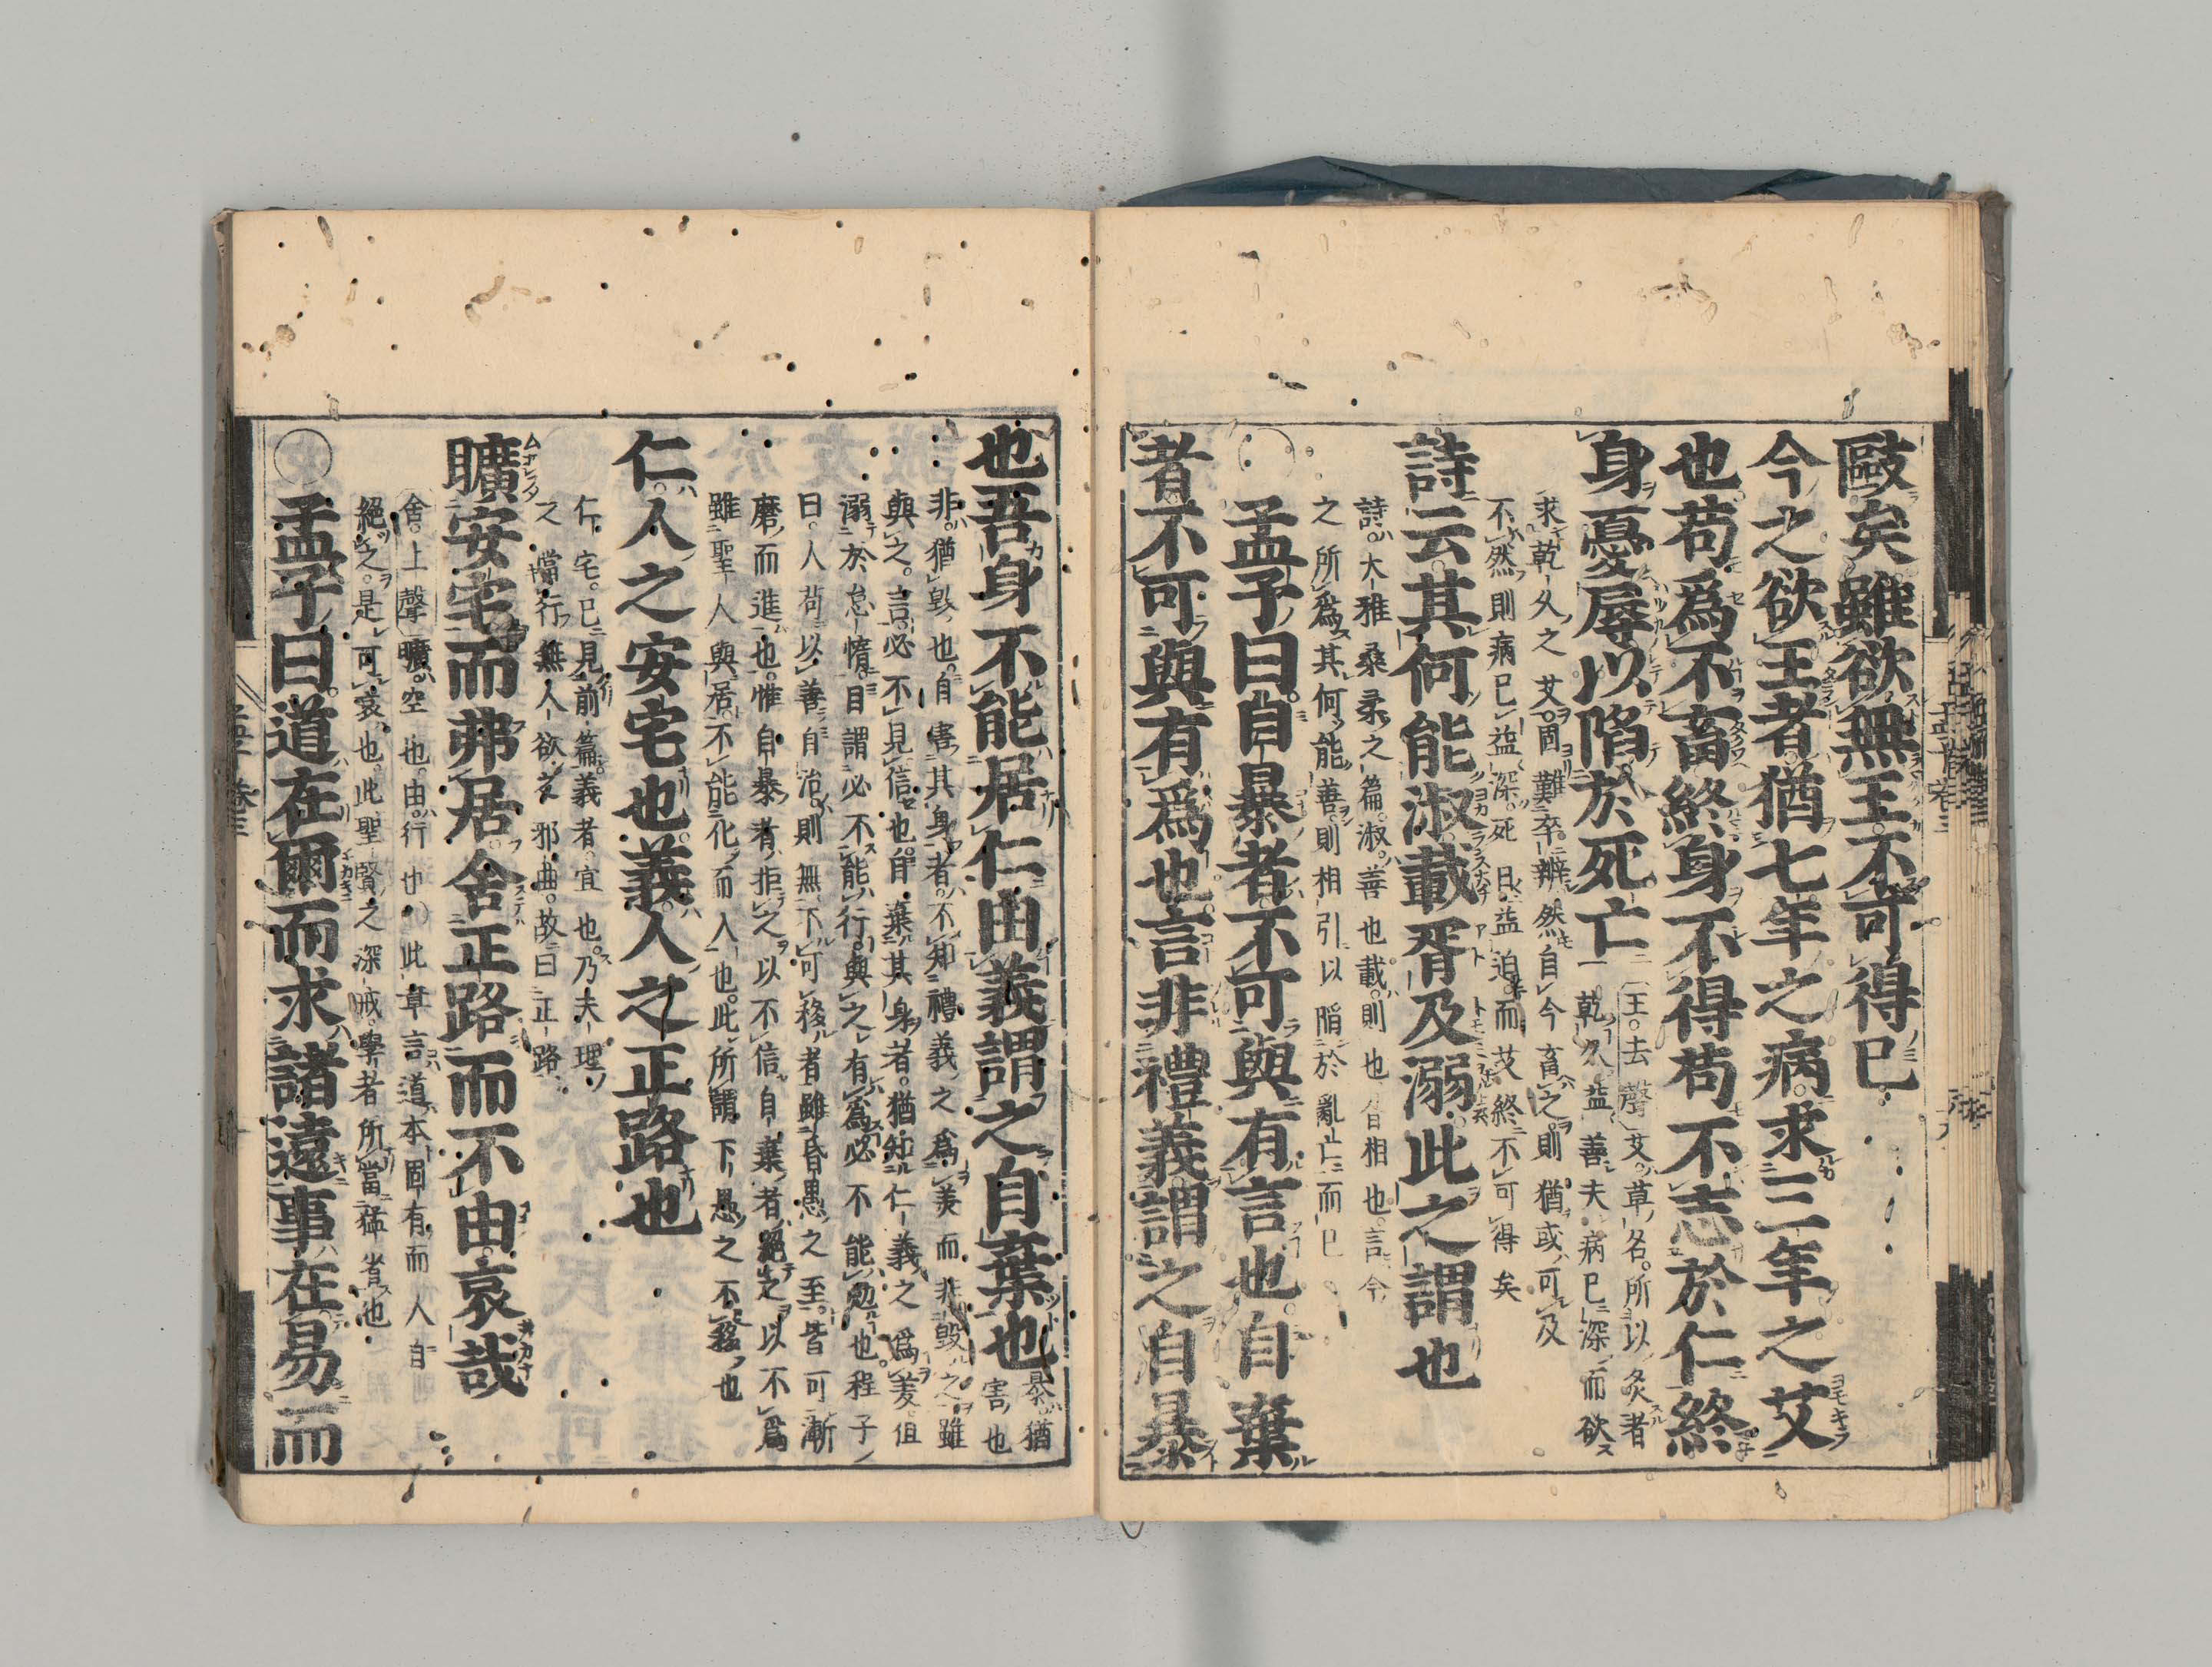 毆矣雖欲無王不可得已
今之欲王者猶七年之病求三年之艾
也苟爲不畜終身不得苟不志於仁終
身憂辱以陷於死亡
王去聲艾草名所以灸者
乾久益善夫病已深而欲
求乾久之艾固難卒辨然自今畜之則猶或可及
不然則病已益深死日益迫而艾終不可得矣
詩云其何能淑載胥及溺此之謂也
詩大雅桑柔之篇淑善也載則也胥相也言今
之所爲其何能善則相引以陷於亂亡而已
孟子曰自暴者不可與有言也自棄
者不可與有爲也言非禮義謂之自暴
也吾身不能居仁由義謂之自棄也
暴猶
害也
非猶毀也自害其身者不知禮義之爲美而非毀之雖
與之言必不見信也自棄其身者猶知仁義之爲美但
溺於怠惰自謂必不能行與之有爲必不能勉也程子
曰人苟以善自治則無不可移者雖昏愚之至皆可漸
磨而進也惟自暴者拒之以不信自棄者絕之以不爲
雖聖人與居不能化而入也此所謂下愚之不移也
仁人之安宅也義人之正路也
仁宅已見前篇義者宜也乃天理
之當行無人欲之邪曲故曰正路
曠安宅而弗居舍正路而不由哀哉
舍上聲曠空也由行也〇此章言道本固有而人自
絕之是可哀也此聖賢之深戒學者所當猛省也
〇孟子曰道在爾而求諸遠事在易而